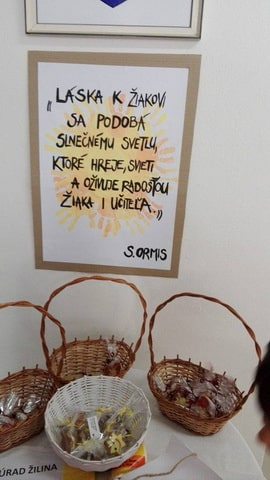 „LÁSKA K ŽIAKOVI
SA PODOBÁ
SLNEČNÉMU SVETLU,
KTORÉ HREJE, SVIETI
A OŽIVUJE RADOSŤOU
ŽIAKA I UČITEĽA.“
S. ORMIS
ÚRAD ŽILINA